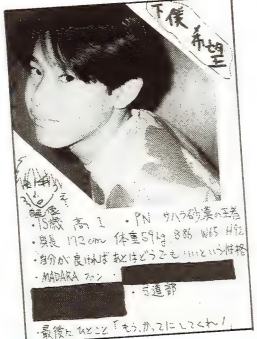 下僕
希望
・15歳 高1 ・PN サハラ砂漠の王者
・身長 172cm 体重59kg B86 W65 H92
・自分が良ければあとはどうでもいいという性格
・MADARA ファン
・弓道部
・最後に ひとこと「もう、かってにしてくれ!」